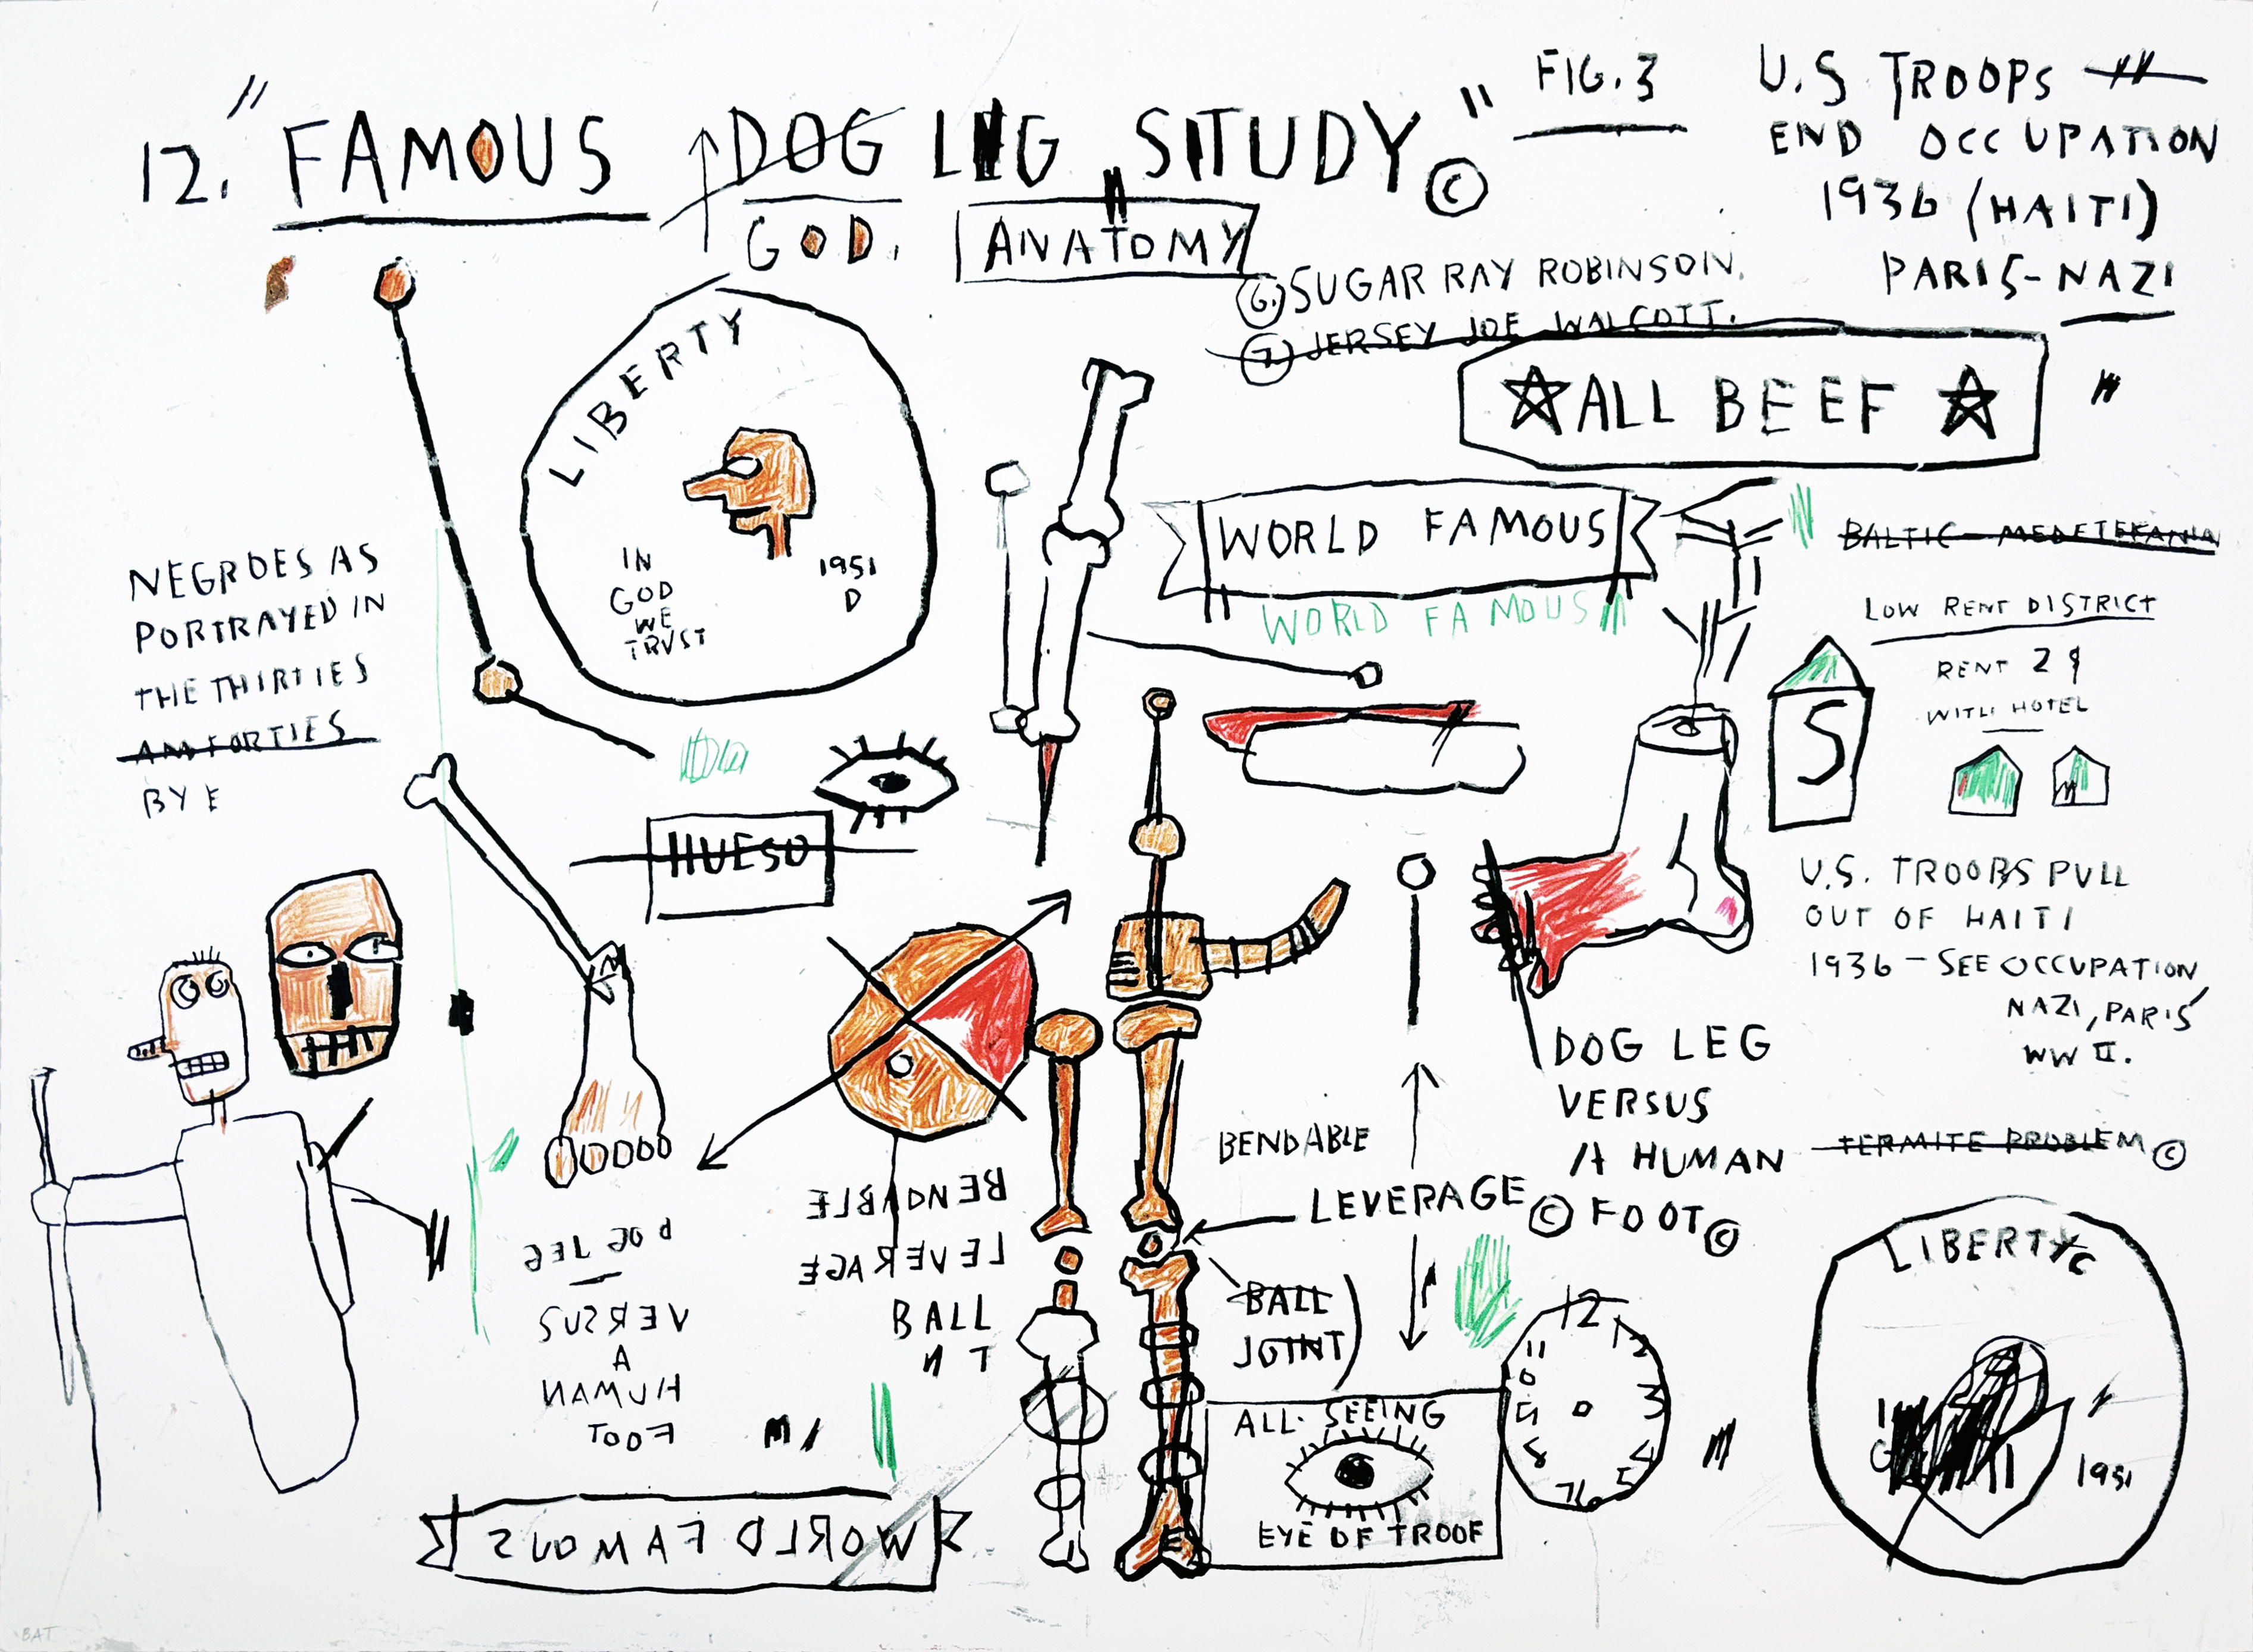 12. "FAMOUS DOG LEG STUDY" ©
GOD.
ANATOMY
FIG. 3
U.S TROOPS
END OCCUPATION
1936 (HAITI)
PARIS-NAZI
6. SUGAR RAY ROBINSON.
7. JERSEY JOE WALCOTT.
ALL BEEF
LIBERTY
IN
GOD
WE
TRVST
1951
D
WORLD FAMOUS
WORLD FAMOUS
BALTIC - MEDETERANIA
LOW RENT DISTRICT
RENT 2 $
WITH HOTEL
S
NEGROES AS
PORTRAYED IN
THE THIRTIES
AND FORTIES
BY E
HUESO
U.S. TROOPS PULL
OUT OF HAITI
1936 - SEE OCCUPATION
NAZI, PARIS
WW II.
DOG LEG
VERSUS
A HUMAN
FOOT ©
TERMITE PROBLEM ©
BENDABLE
LEVERAGE ©
BALL
JOINT)
BENDABLE
LEVERAGE
BALL
N T
DOG LEG
VERSUS
A
HUMAN
FOOT
WORLD FAMOUS
ALL-SEEING
EYE OF TROOF
12
11
3
4
5
8
LIBERTY
1951
BAT